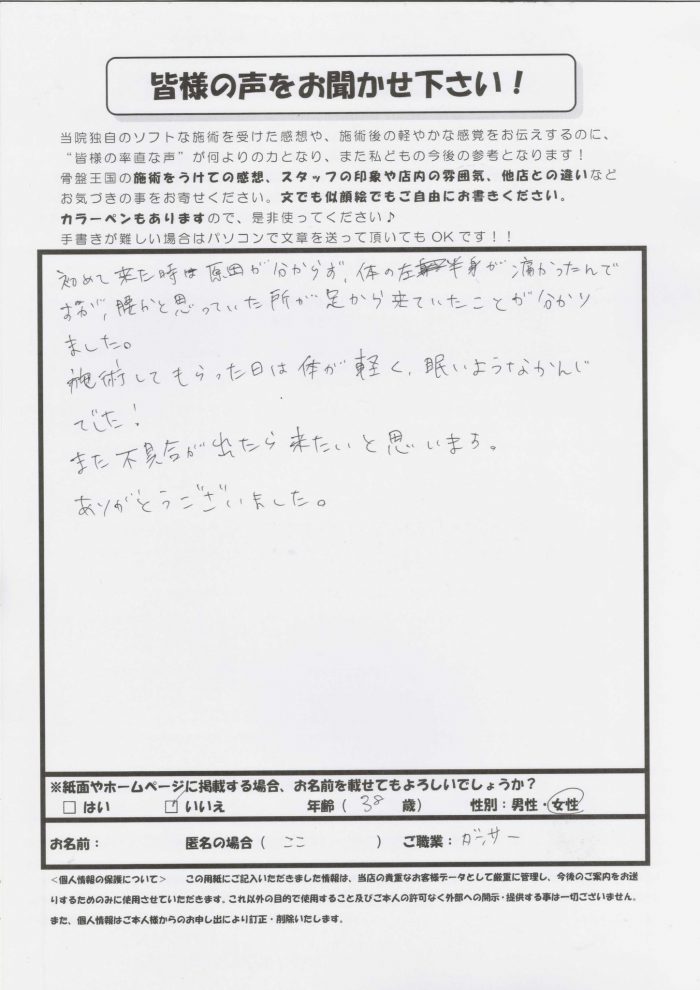 皆様の声をお聞かせ下さい！
当院独自のソフトな施術を受けた感想や、施術後の軽やかな感覚をお伝えするのに、
“皆様の率直な声”が何よりの力となり、また私どもの今後の参考となります！
骨盤王国の施術をうけての感想、スタッフの印象や店内の雰囲気、他店との違いなど
お気づきの事をお寄せください。文でも似顔絵でもご自由にお書きください。
カラーペンもありますので、是非使ってください♪
手書きが難しい場合はパソコンで文章を送って頂いてもOKです！！
初めて来た時は原因が分からず、体の左半身が痛かったんで
すが、腰かと思っていた所が足から来ていたことが分かり
ました。
施術してもらった日は体が軽く、眠いようなかんじ
でした！
また不具合が出たら来たいと思います。
ありがとうございました。
※紙面やホームページに掲載する場合、お名前を載せてもよろしいでしょうか？
□ はい ☑ いいえ 年齢（ 38 歳） 性別：男性・女性
お名前： 匿名の場合（ ここ ） ご職業：ダンサー
＜個人情報の保護について＞ この用紙にご記入いただきました情報は、当店の貴重なお客様データとして厳重に管理し、今後のご案内をお送
りするためのみに使用させていただきます。これ以外の目的で使用すること及びご本人の許可なく外部への開示・提供する事は一切ございません。
また、個人情報はご本人様からのお申し出により訂正・削除いたします。